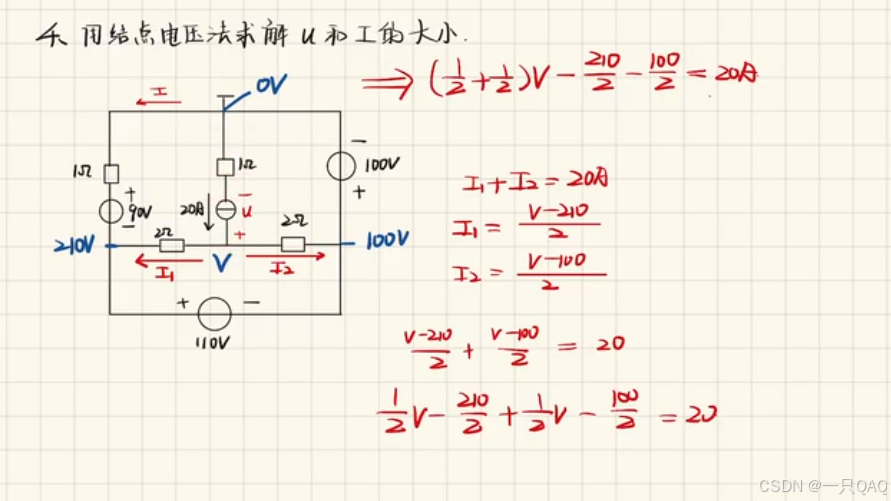 4、用结点电压法求解 U 和 I 的大小.
⟹ (1/2+1/2)V - 210/2 - 100/2 = 20A
I
0V
1Ω
+
90V
-
1Ω
-
20A
u
+
-
100V
+
2Ω
2Ω
210V
I₁
V
I₂
100V
+
-
110V
I₁+I₂=20A
I₁ = (V-210)/2
I₂ = (V-100)/2
(V-210)/2 + (V-100)/2 = 20
1/2V - 210/2 + 1/2V - 100/2 = 20
CSDN @一只QAQ